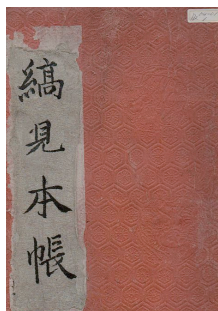 縞見本帳